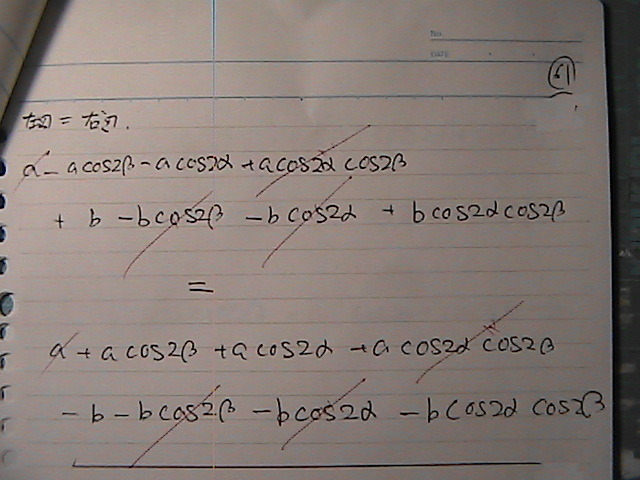 No.
DATE
61
左边 = 右边.
a - a cos2β - a cos2α + a cos2α cos2β
+ b - b cos2β - b cos2α + b cos2α cos2β
=
a + a cos2β + a cos2α + a cos2α cos2β
- b - b cos2β - b cos2α - b cos2α cos2β